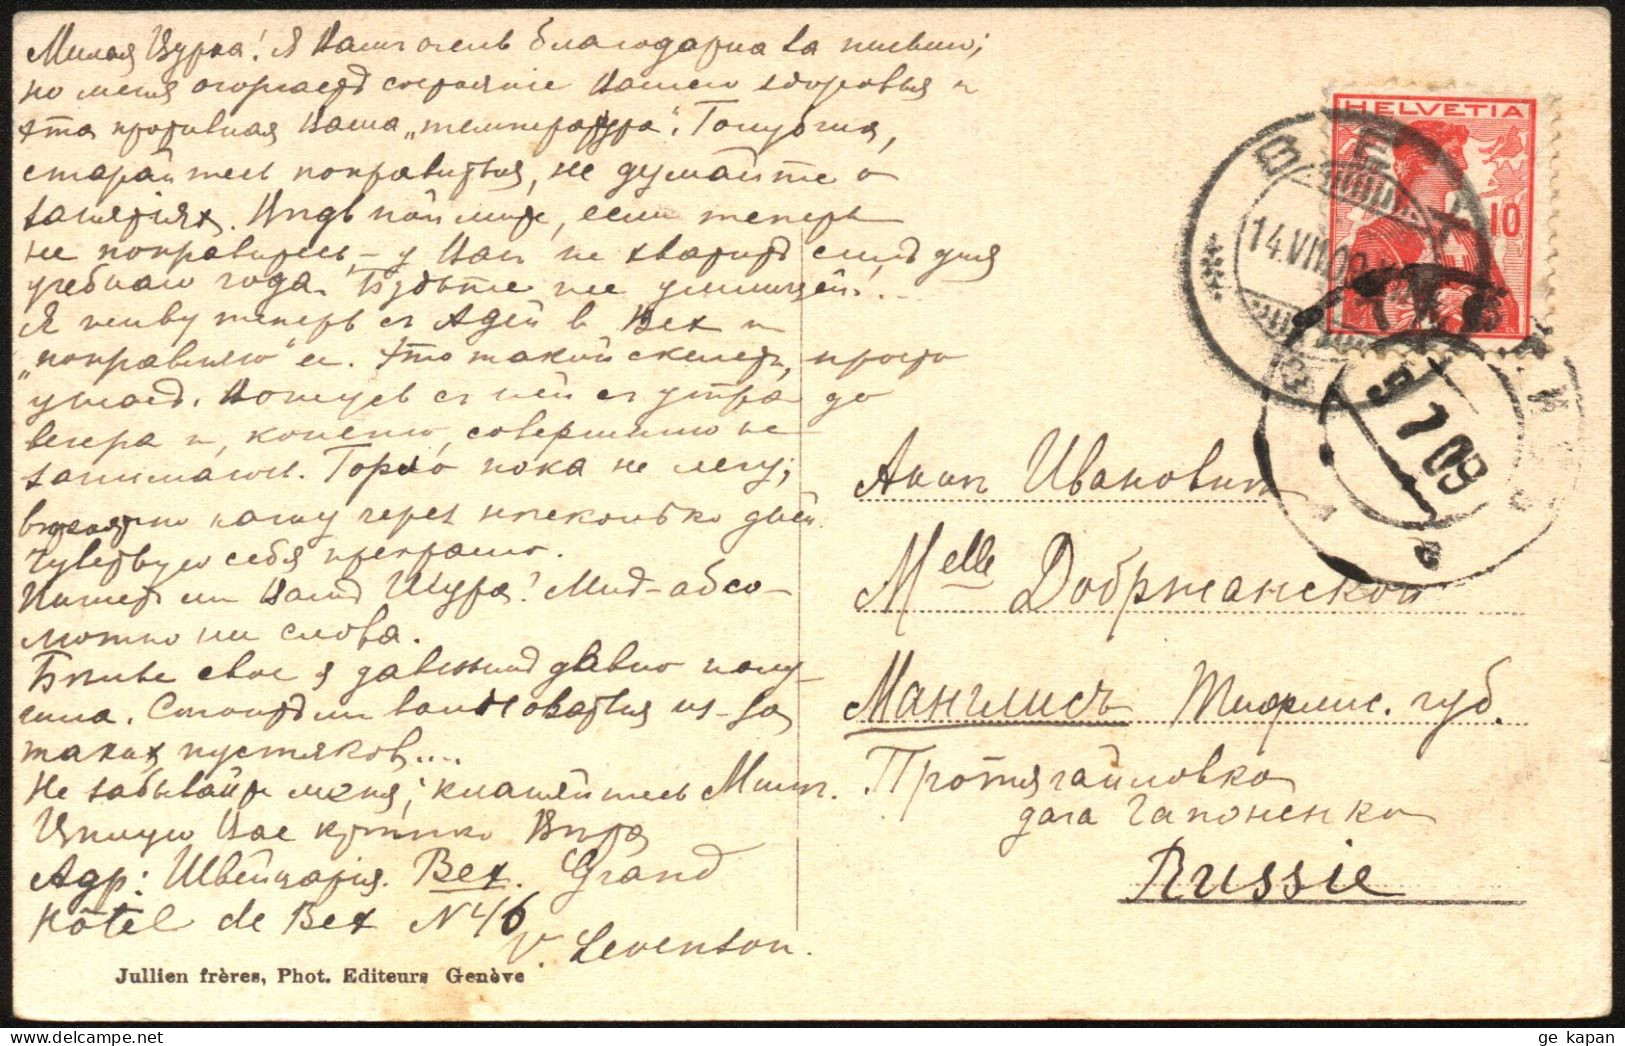 Милая Цурка! Я Вамъ очень благодарна за письмо;
но меня огорчаетъ состоянiе Вашего здоровья и
эта противная Ваша „температура“. Голубчикъ,
старайтесь поправиться, не думайте о
занятiяхъ. Вѣдь поймите, если теперь
не поправитесь, – у Васъ не хватитъ силъ для
учебнаго года. Будьте же умницей!..
Я живу теперь съ Адей въ Bex и
„поправляю“ ее. Это такой скелетъ, просто
ужасъ. Вожусь съ ней съ утра до
вечера и, конечно, совершенно не
занимаюсь. Горло пока не лечу;
вѣроятно начну черезъ нѣсколько дней.
Чувствую себя прекрасно.
Пишетъ ли Вамъ Шура? Мнѣ – абсо–
лютно ни слова.
Бѣлье свое я давнымъ давно полу–
чила. Стоитъ ли волноваться из–за
такихъ пустяковъ....
Не забывайте меня; кланяйтесь Мит.
Цѣлую Вас крѣпко Вѣра
Адр: Швейцарiя. Bex. Grand
Hôtel de Bex N 46
V. Levenson.
Jullien frères, Phot. Editeurs Genève
HELVETIA
10
BEX
14.VII.09
5 7 09
Аннѣ Ивановнѣ
Melle Добржанской
Манглисъ Тифлис. губ.
дача Гапоненко
Russie
ge_kapan